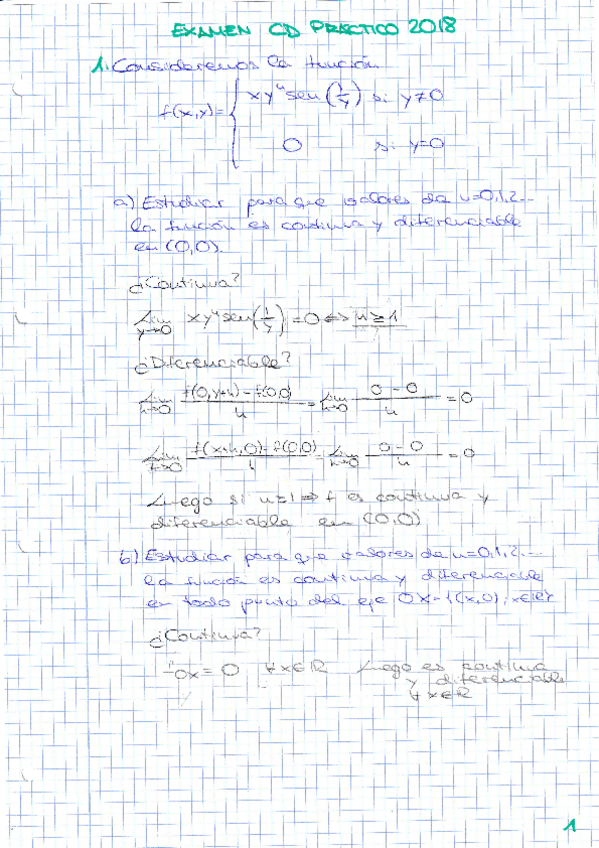 EXAMEN CD PRÁCTICO 2018
1. Consideremos la función
f(x,y)= { xyⁿ sen(1/y) si y≠0
0 si y=0
a) Estudiar para que valores de n=0,1,2...
la función es continua y diferenciable
en (0,0).
¿Continua?
Lim y→0 xyⁿ sen(1/y) = 0 ⇔ n≥1
¿Diferenciable?
Lim h→0 f(0,y+h)-f(0,0) / h = Lim h→0 0-0 / h = 0
Lim h→0 f(x+h,0)-f(0,0) / h = Lim h→0 0-0 / h = 0
Luego si n≥1 ⇒ f es continua y
diferenciable en (0,0)
b) Estudiar para que valores de n=0,1,2...
la función es continua y diferenciable
en todo punto del eje OX={(x,0); x∈R}
¿Continua?
= 0 ∀x∈R Luego es continua
y diferenciable
∀x∈R
1